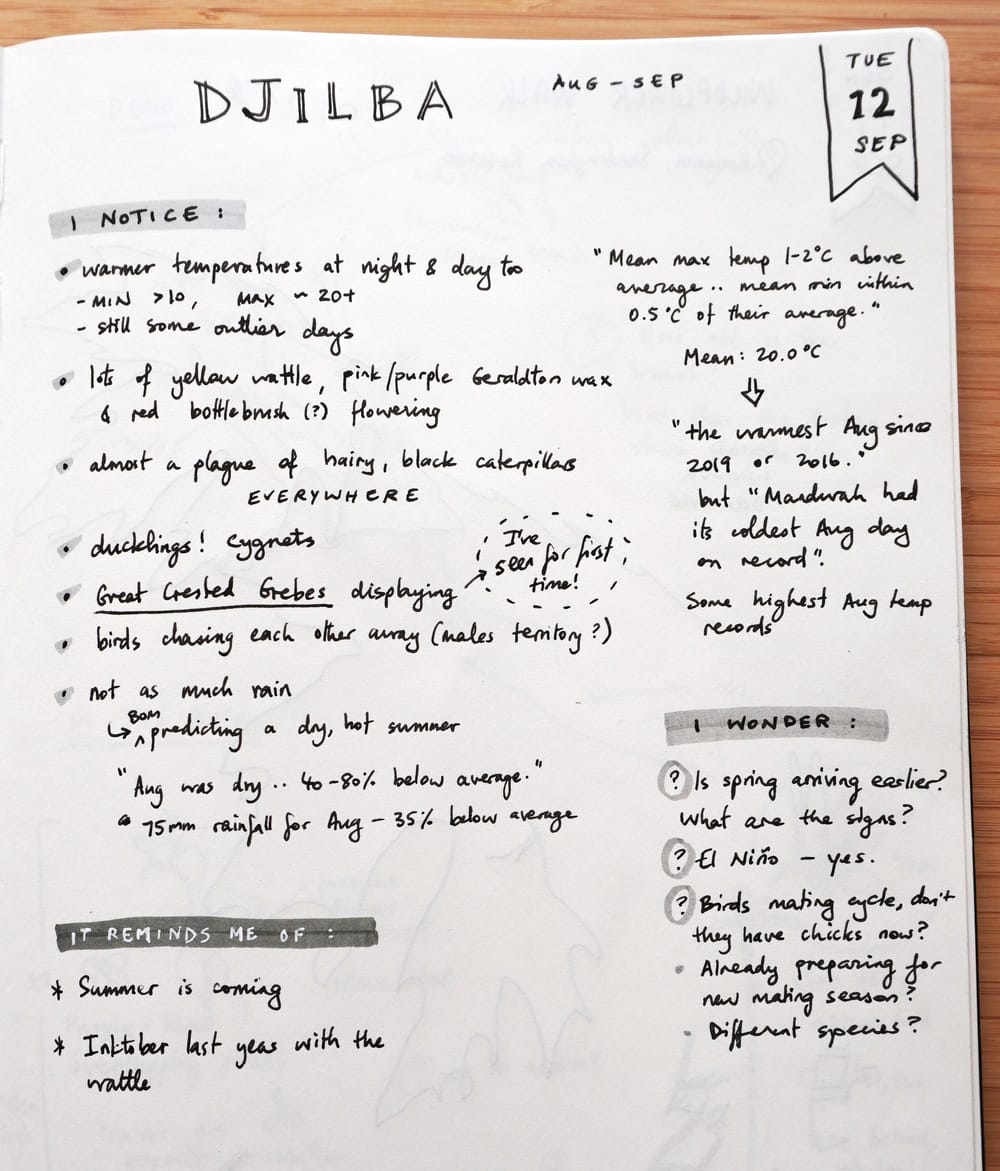 DJILBA
AUG - SEP
TUE
12
SEP
I NOTICE :
• warmer temperatures at night & day too
- MIN >10, MAX ~ 20+
- still some outlier days
• lots of yellow wattle, pink/purple Geraldton wax
& red bottlebrush (?) flowering
• almost a plague of hairy, black caterpillars
EVERYWHERE
• ducklings! cygnets
• Great Crested Grebes displaying
I've
seen for first
time!
• birds chasing each other away (males territory?)
• not as much rain
↳ BOM ^ predicting a dry, hot summer
"Aug was dry .. 40-80% below average."
• 75mm rainfall for Aug - 35% below average
IT REMINDS ME OF :
* Summer is coming
* Inktober last year with the
wattle
"Mean max temp 1-2°C above
average .. mean min within
0.5°C of their average."
Mean: 20.0°C
⇓
"the warmest Aug since
2019 or 2016."
but "Mandurah had
its coldest Aug day
on record".
Some highest Aug temp
records
I WONDER :
? Is spring arriving earlier?
What are the signs?
? El Niño - yes.
? Birds mating cycle, don't
they have chicks now?
• Already preparing for
new mating season?
• Different species?